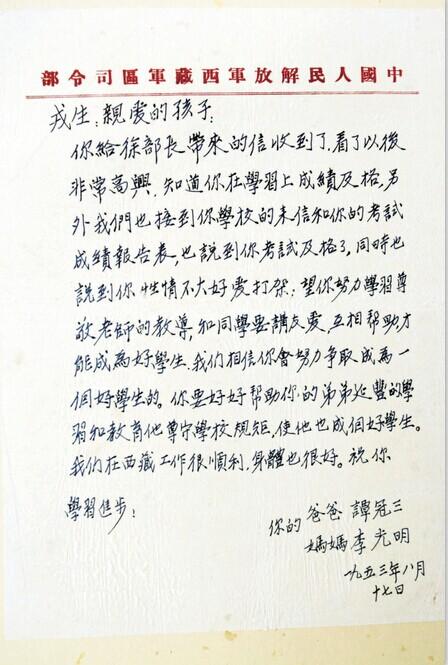 中國人民解放軍西藏軍區司令部
戎生：親愛的孩子：
你給徐部長帶來的信收到了，看了以後
非常高興，知道你在學習上成績及格，另
外我們也接到你學校的来信和你的考試
成績報告表，也說到你考試及格了，同時也
說到你性情不大好愛打架；望你努力學習尊
敬老師的教導，和同學要講友愛，互相帮助才
能成為好學生，我們相信你會努力争取成為一
個好學生的。你要好好帮助你的弟弟延豐的學
習和教育他尊守學校規矩，使他也成個好學生。
我們在西藏工作很順利，身體也很好。祝你
學習進步！
你的爸爸 譚冠三
媽媽 李光明
一九五三年八月
十七日